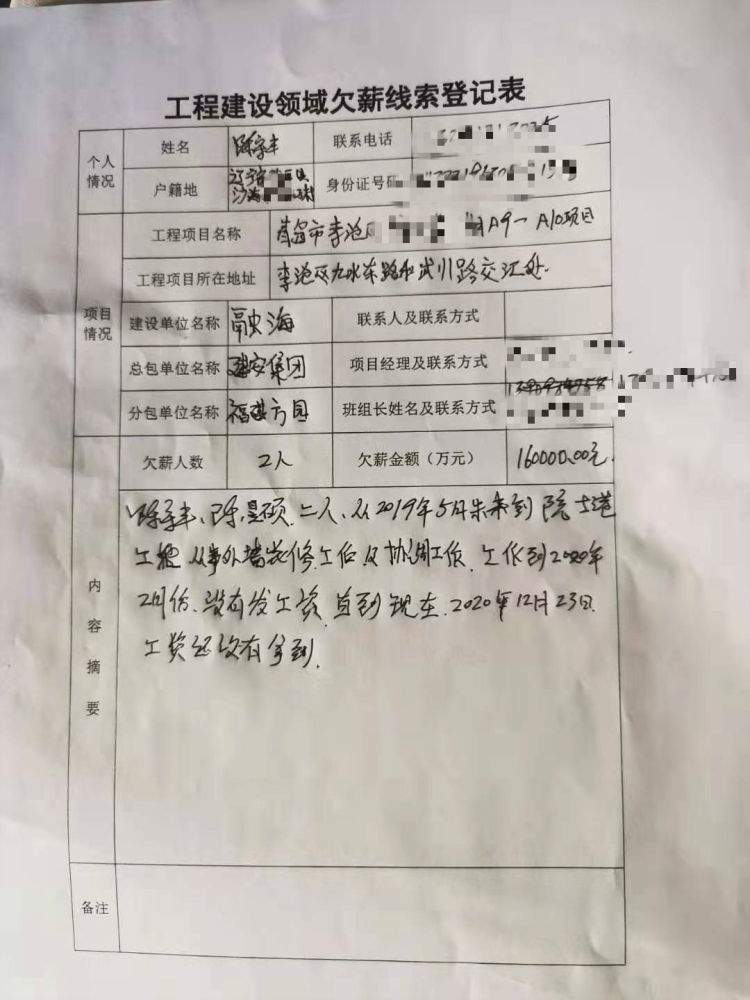 工程建设领域欠薪线索登记表
个人情况 姓名 联系电话
户籍地 辽宁 身份证号码
项目情况 工程项目名称 青岛市李沧 A9－A10项目
工程项目所在地址 李沧区九水东路和 川路交汇处.
建设单位名称 融海 联系人及联系方式
总包单位名称 建安集团 项目经理及联系方式
分包单位名称 福建方圆 班组长姓名及联系方式
欠薪人数 2人 欠薪金额（万元） 160000.00元
内容摘要
二人、从2019年5月末来到院士港
工地 从事外墙装修工作及协调工作、工作到2020年
2月份、没有发工资、直到现在、2020年12月23日
工资还没有拿到.
备注